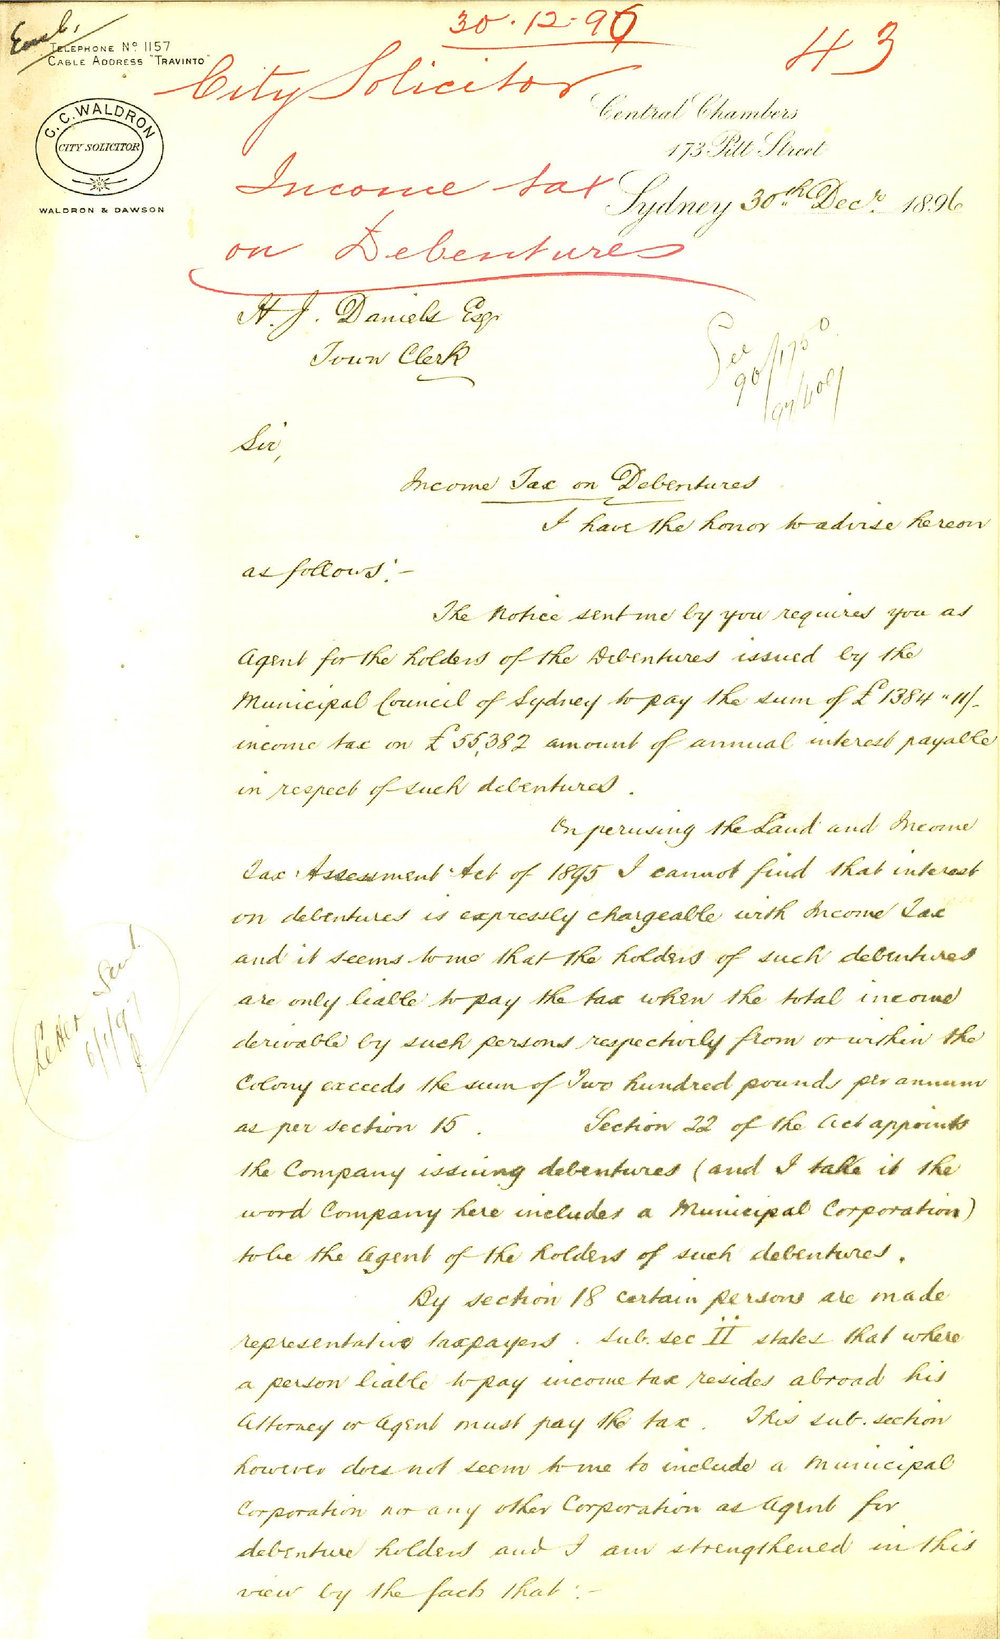 Encl.
30.12.96
43
TELEPHONE No 1157
CABLE ADDRESS "TRAVINTO"
City Solicitor
C.C. WALDRON
CITY SOLICITOR
WALDRON & DAWSON
Central Chambers
173 Pitt Street
Income tax
Sydney 30th Decr. 1896
on Debentures
H. J. Daniels Esq.
Town Clerk
See
90/1750
97/409
Sir,
Income Tax on Debentures
I have the honor to advise hereon
as follows:-
The Notice sent me by you requires you as
Agent for the holders of the Debentures issued by the
Municipal Council of Sydney to pay the sum of £1384 " 11/-
income tax on £55,382 amount of annual interest payable
in respect of such debentures.
On perusing the Land and Income
Tax Assessment Act of 1895 I cannot find that interest
on debentures is expressly chargeable with Income Tax
and it seems to me that the holders of such debentures
are only liable to pay the tax when the total income
derivable by such persons respectively from or within the
Colony exceeds the sum of Two hundred pounds per annum
as per section 15. Section 22 of the Act appoints
the Company issuing debentures (and I take it the
word Company here includes a Municipal Corporation)
to be the Agent of the holders of such debentures.
By section 18 certain persons are made
representative taxpayers. Sub. sec II states that where
a person liable to pay income tax resides abroad his
Attorney or Agent must pay the tax. This sub. section
however does not seem to me to include a Municipal
Corporation nor any other Corporation as Agent for
debenture holders and I am strengthened in this
view by the fact that:-
Letter Sent
6/1/97